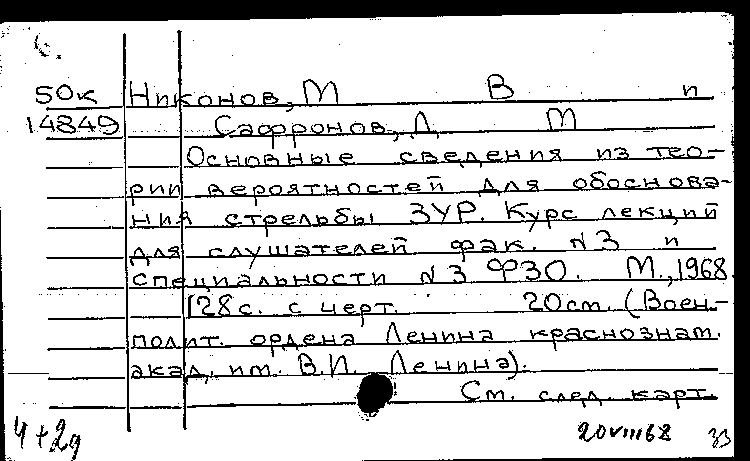 50к Никонов, М В и
14849 Сафронов, Д М
Основные сведения из тео-
рии вероятностей для обоснова-
ния стрельбы ЗУР. Курс лекций
для слушателей фак. №3 и
специальности №3 ФЗО. М., 1968.
128с. с черт. 20см. (Воен-
полит. ордена Ленина краснознам.
акад. им. В.И. Ленина).
См. след. карт.
4+2д 20VIII68